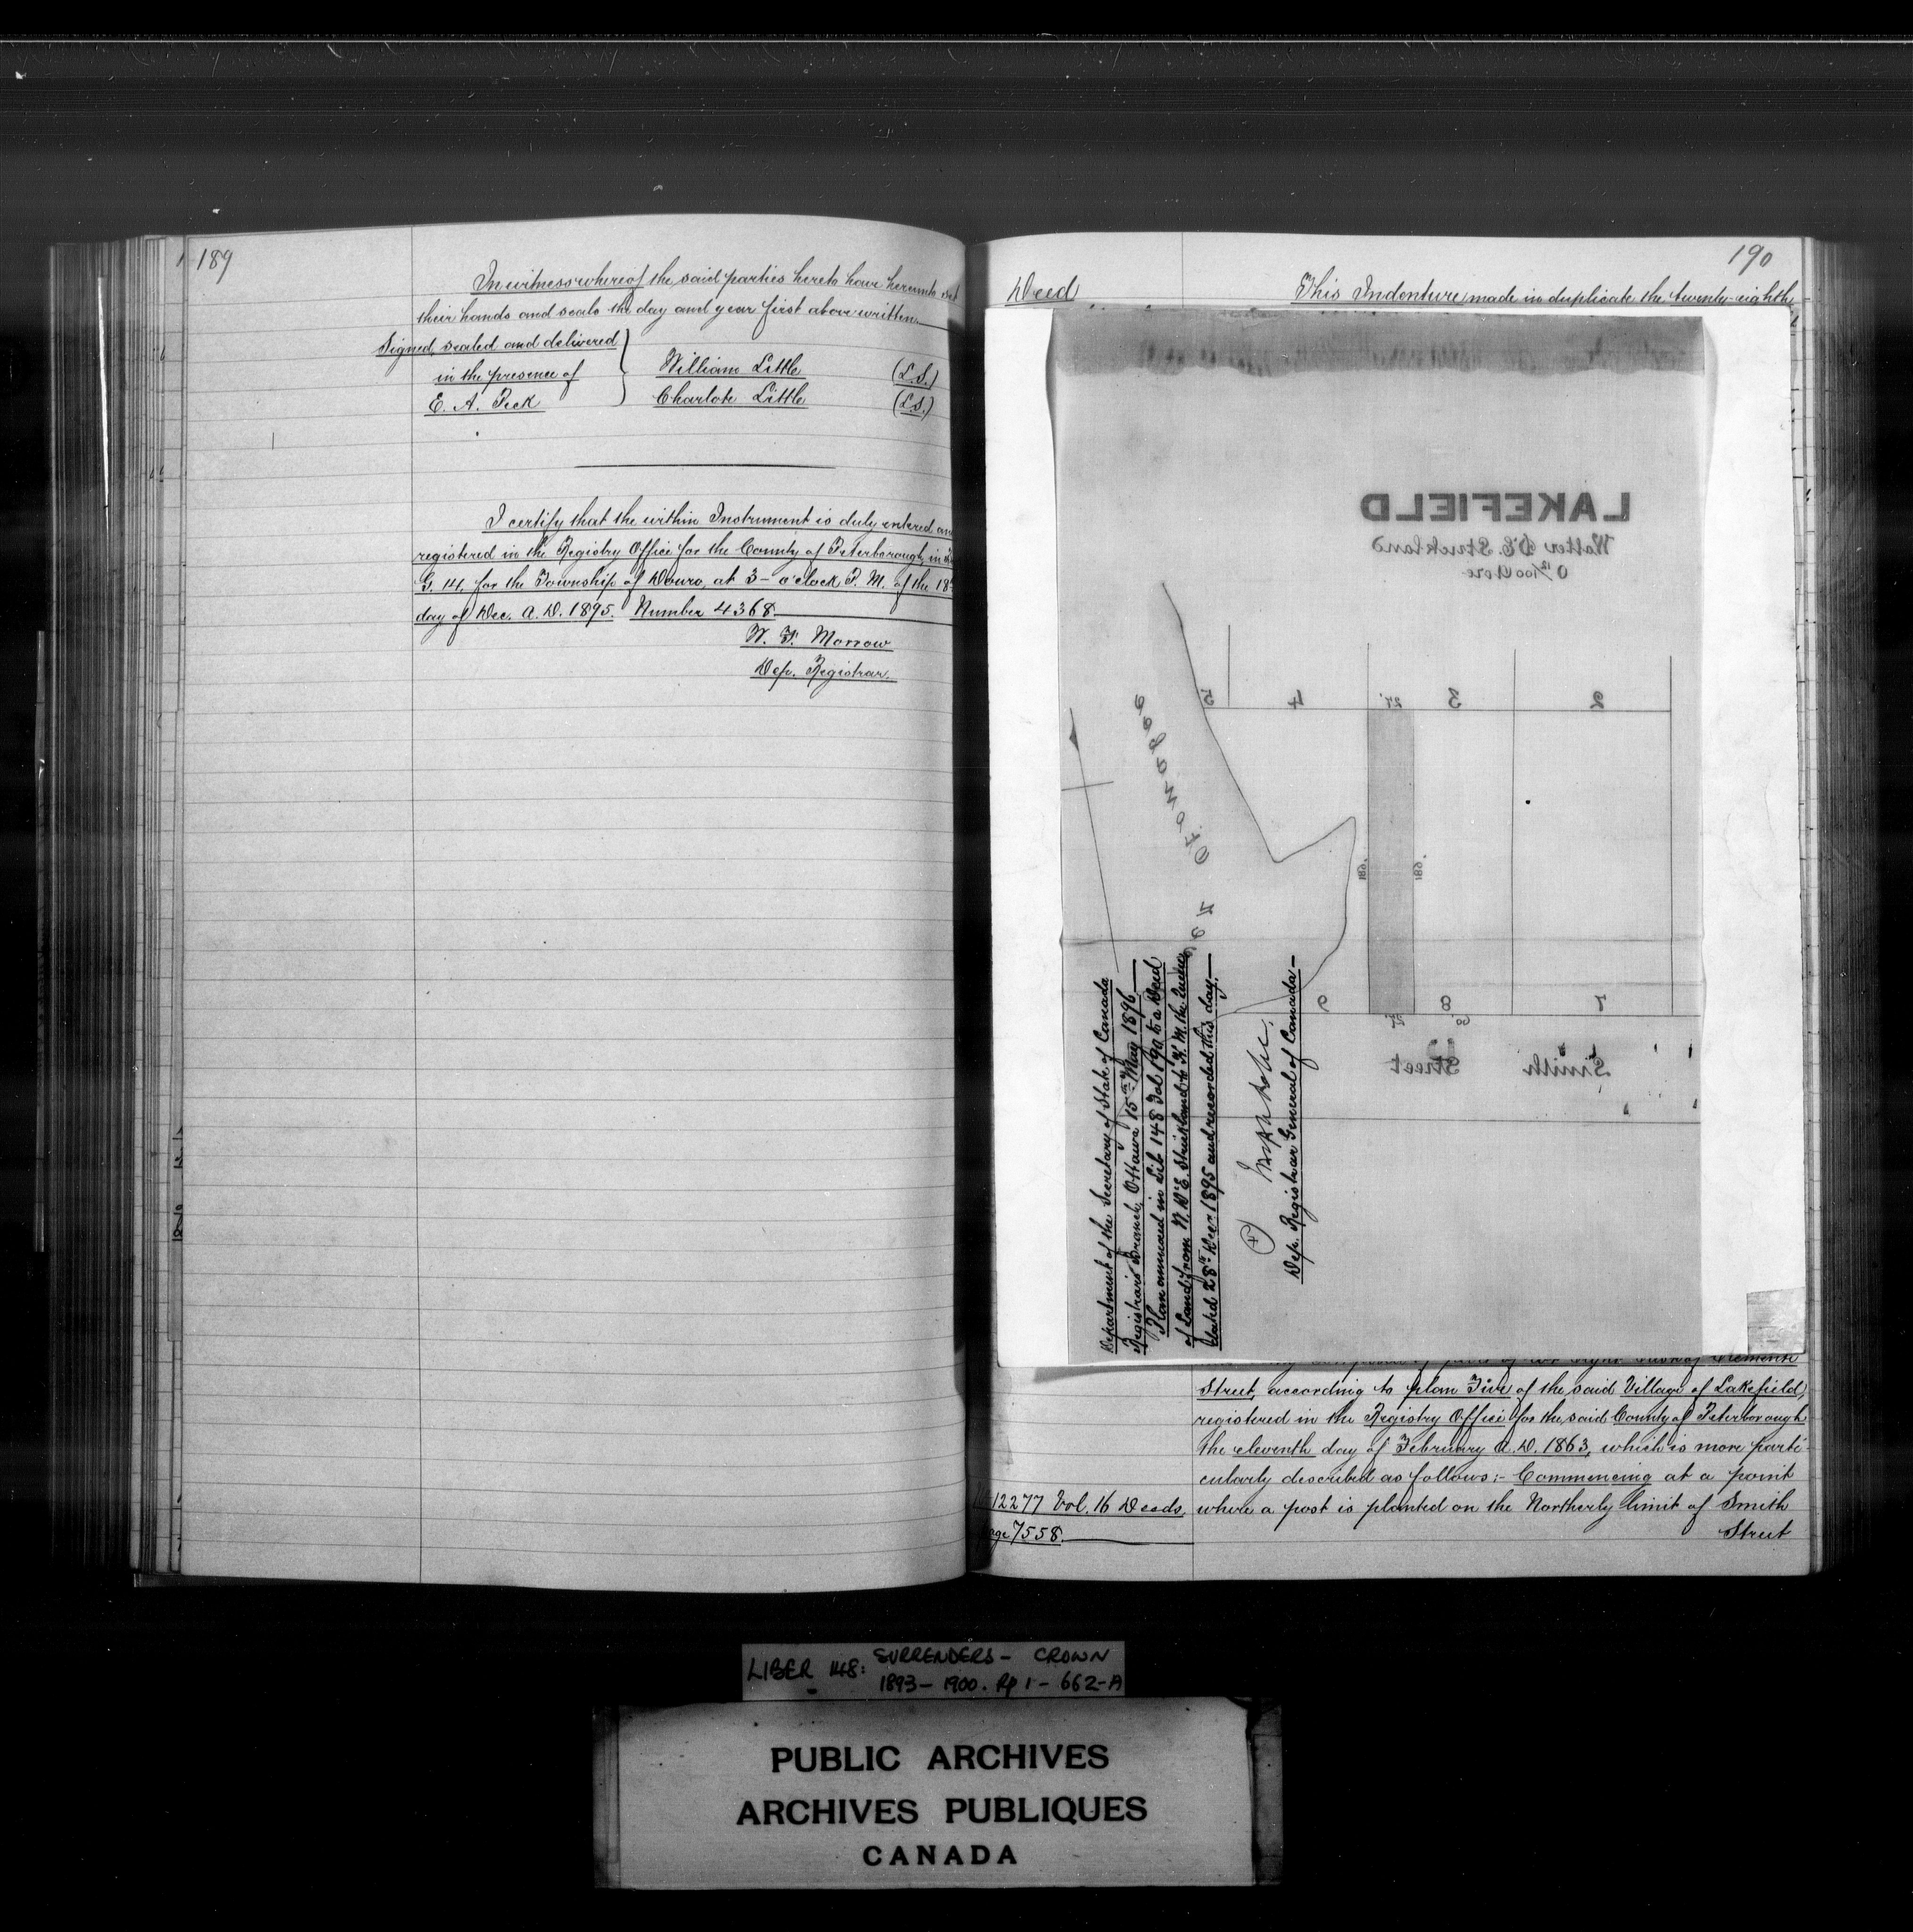 189
In witness whereof the said parties hereto have hereunto set
their hands and seals the day and year first above written.
Signed, sealed and delivered
in the presence of
E. A. Peck
William Little (L.S.)
Charlote Little (L.S.)
I certify that the within Instrument is duly entered and
registered in the Registry Office for the County of Peterborough, in
G. 14, for the Township of Douro, at 3 - o'clock P. M. of the 18
day of Dec. A. D. 1895. Number 4368.
W. F. Morrow
Dep. Registrar.
190
Deed
This Indenture made in duplicate the twenty-eighth
LAKEFIELD
Walter D'E. Strickland
0 12/100 Acre
5 4 27' 3 2
Otonabee
189' 189'
9 27' 60' 8 7
Smith Street
Department of the Secretary of State of Canada
Registrar's Branch, Ottawa 15th May 1896
Plan annexed in Lib 148 Fol 190 to a Deed
of Land from W. D'E. Strickland to H. M. the Queen
dated 28th Decr 1895 and recorded this day.
Dep. Registrar General of Canada
Street, according to plan Five of the said Village of Lakefield,
registered in the Registry Office for the said County of Peterborough
the eleventh day of February A. D. 1863, which is more parti-
cularly described as follows:- Commencing at a point
12277 Vol. 16 Deeds.
where a post is planted on the Northerly limit of Smith
7558.
Street
LIBER 148: SURRENDERS - CROWN
1893 - 1900. Pp 1 - 662-A
PUBLIC ARCHIVES
ARCHIVES PUBLIQUES
CANADA